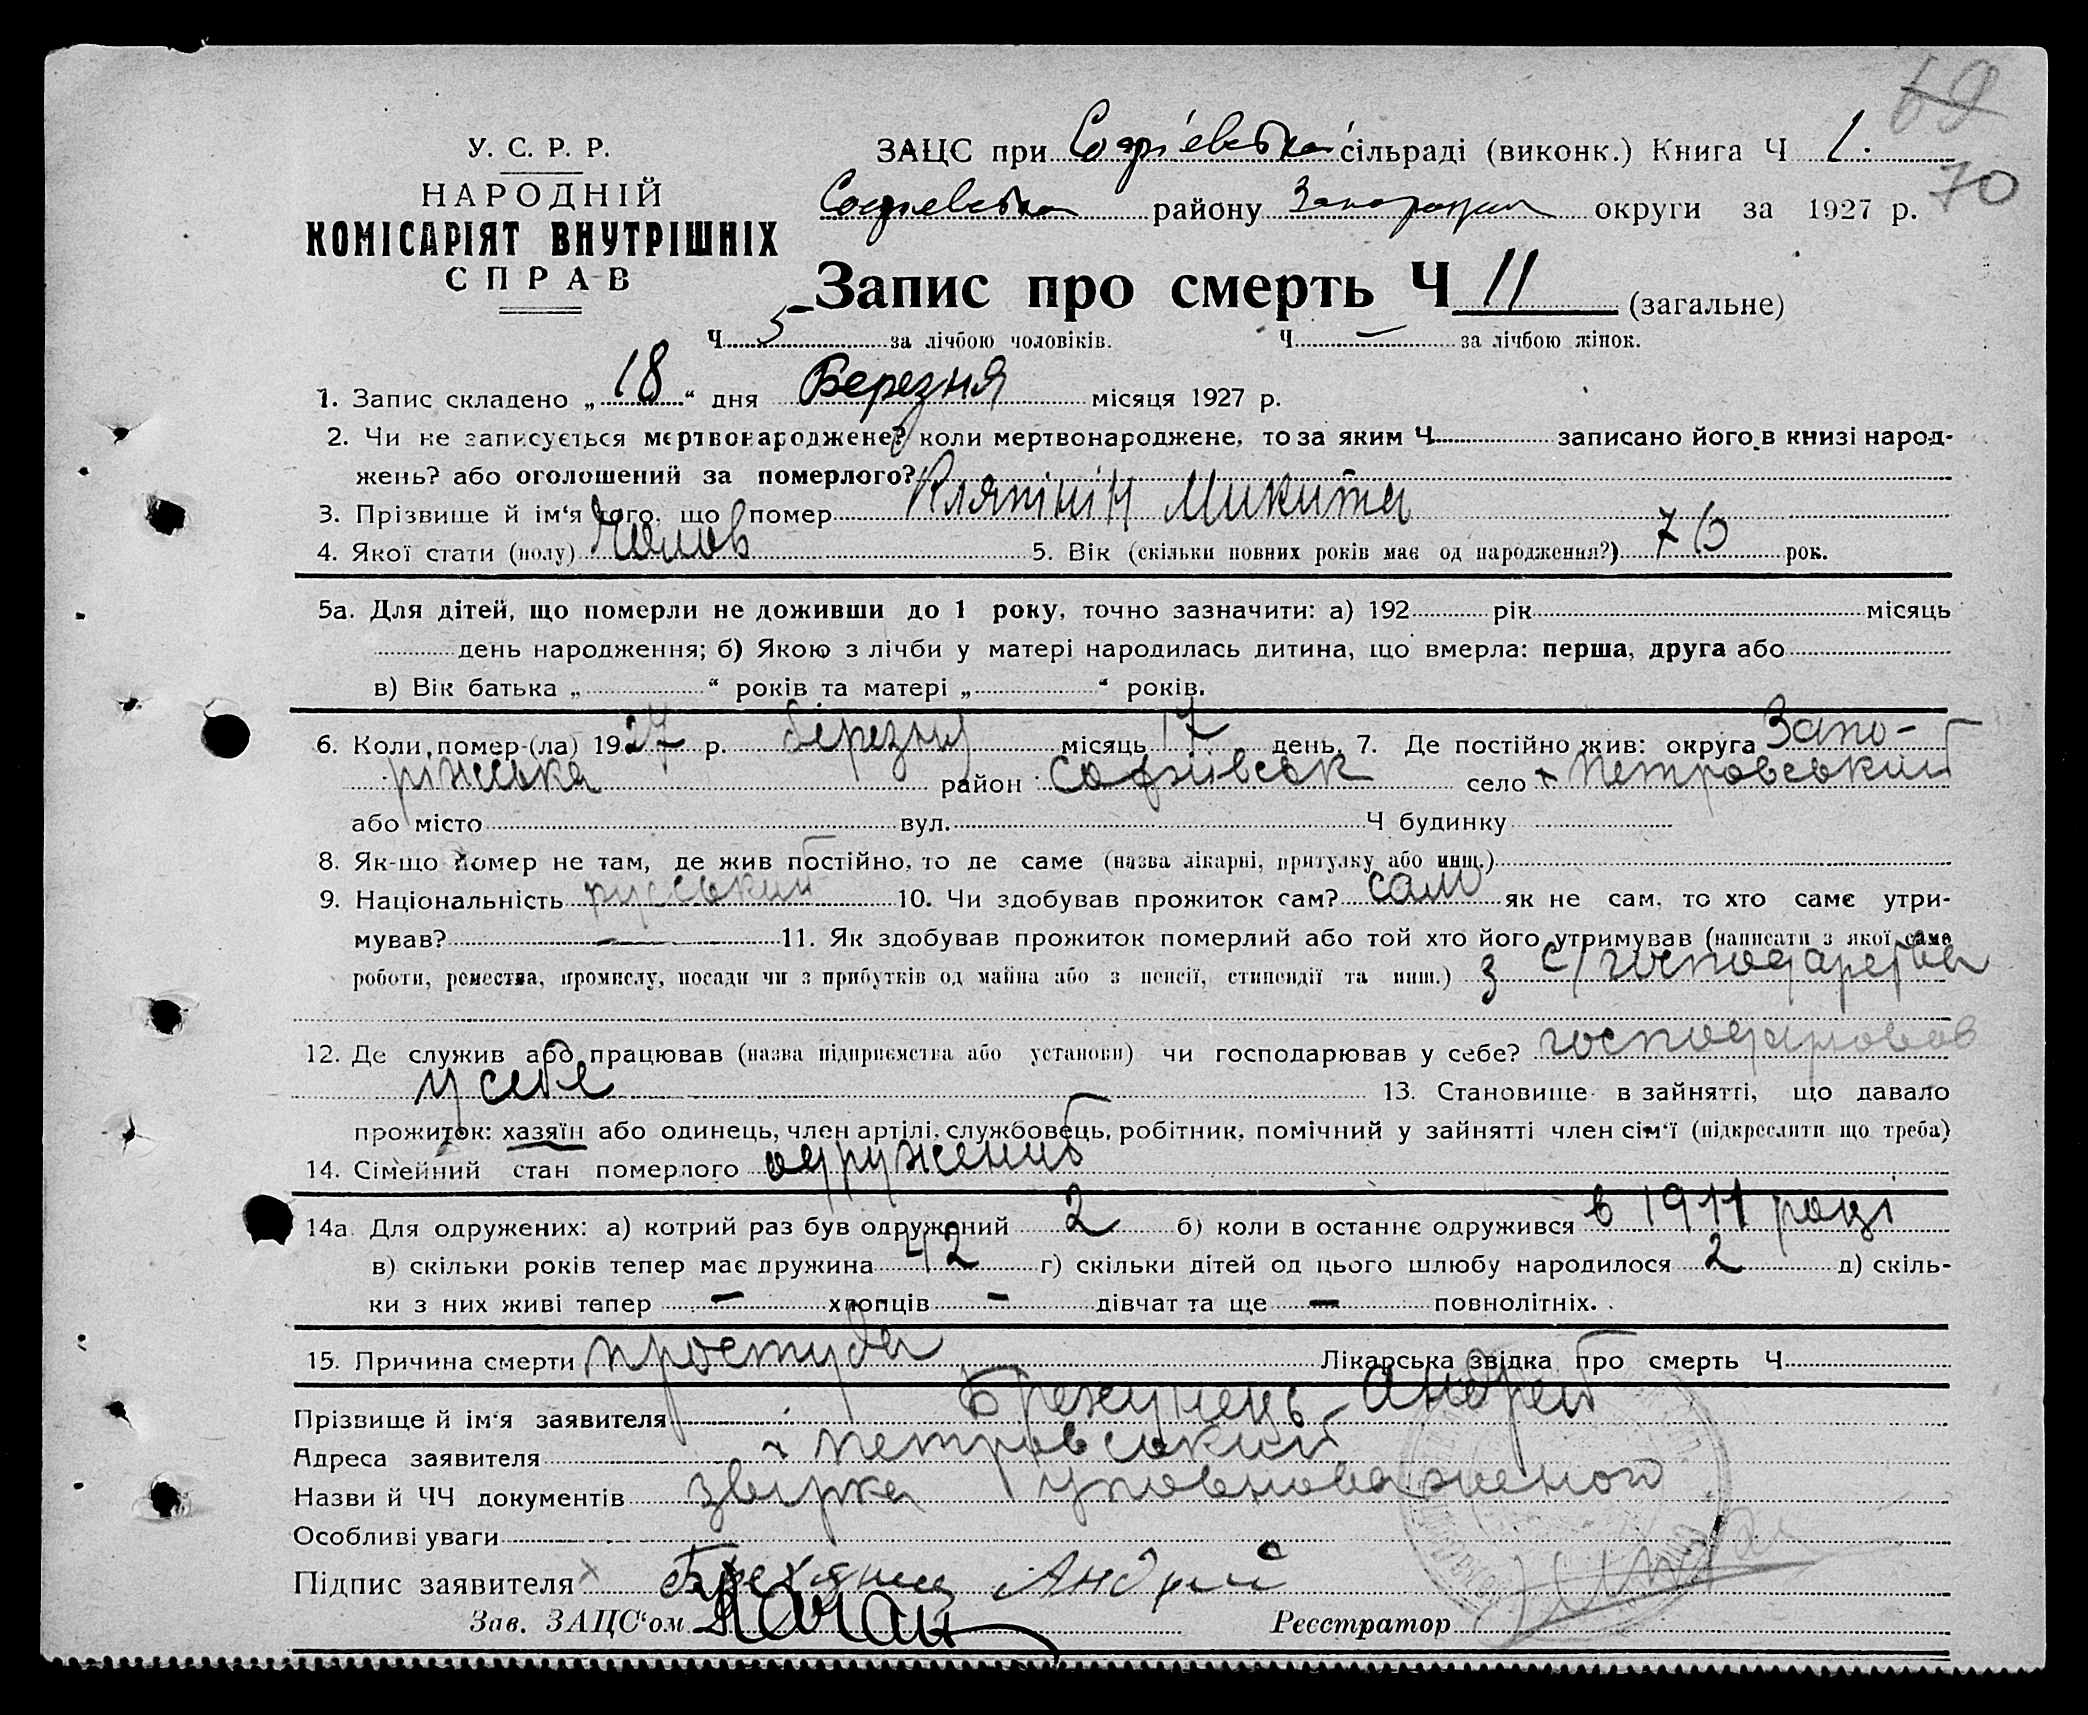 69
70
У. С. Р. Р.
НАРОДНІЙ
КОМІСАРІЯТ ВНУТРІШНІХ
СПРАВ
ЗАЦС при Софіевська сільраді (виконк.) Книга Ч 1.
Софіевська району округи за 1927 р.
Запис про смерть Ч 11 (загальне)
Ч 5 за лічбою чоловіків. Ч — за лічбою жінок.
1. Запис складено „ 18 “ дня Березня місяця 1927 р.
2. Чи не записується мертвонароджене? коли мертвонароджене, то за яким Ч записано його в книзі народ-
жень? або оголошений за померлого?
3. Прізвище й ім‘я того, що помер Микита
4. Якої стати (полу) Чолов 5. Вік (скільки повних років має од народження?) 76 рок.
5а. Для дітей, що померли не доживши до 1 року, точно зазначити: а) 192 рік місяць
день народження; б) Якою з лічби у матері народилась дитина, що вмерла: перша, друга або
в) Вік батька „ “ років та матері „ “ років.
6. Коли помер (ла) 1927 р. березня місяць 17 день. 7. Де постійно жив: округа Запо-
ріжська район Софіївськ село х Петровський
або місто вул. Ч будинку
8. Як-що помер не там, де жив постійно, то де саме (назва лікарні, притулку або инш.)
9. Національність руський 10. Чи здобував прожиток сам? сам як не сам, то хто саме утри-
мував? — 11. Як здобував прожиток померлий або той хто його утримував (написати з якої саме
роботи, ремества, промислу, посади чи з прибутків од майна або з пенсії, стипендії та инш.) з с/господарства
12. Де служив або працював (назва підприємства або установи) чи господарював у себе? господарював
у себе 13. Становище в зайнятті, що давало
прожиток: хазяїн або одинець, член артілі, службовець, робітник, помічний у зайнятті член сім‘ї (підкреслити що треба)
14. Сімейний стан померлого одружений
14а. Для одружених: а) котрий раз був одружений 2 б) коли в останнє одружився в 1911 році
в) скільки років тепер має дружина 42 г) скільки дітей од цього шлюбу народилося 2 д) скіль-
ки з них живі тепер — хлопців — дівчат та ще — повнолітніх.
15. Причина смерти простуда Лікарська звідка про смерть Ч
Прізвище й ім‘я заявителя Андрей
Адреса заявителя х Петровський
Назви й ЧЧ документів звірка уповноваженого
Особливі уваги
Підпис заявителя х Андрий
Зав. ЗАЦС‘ом Реєстратор